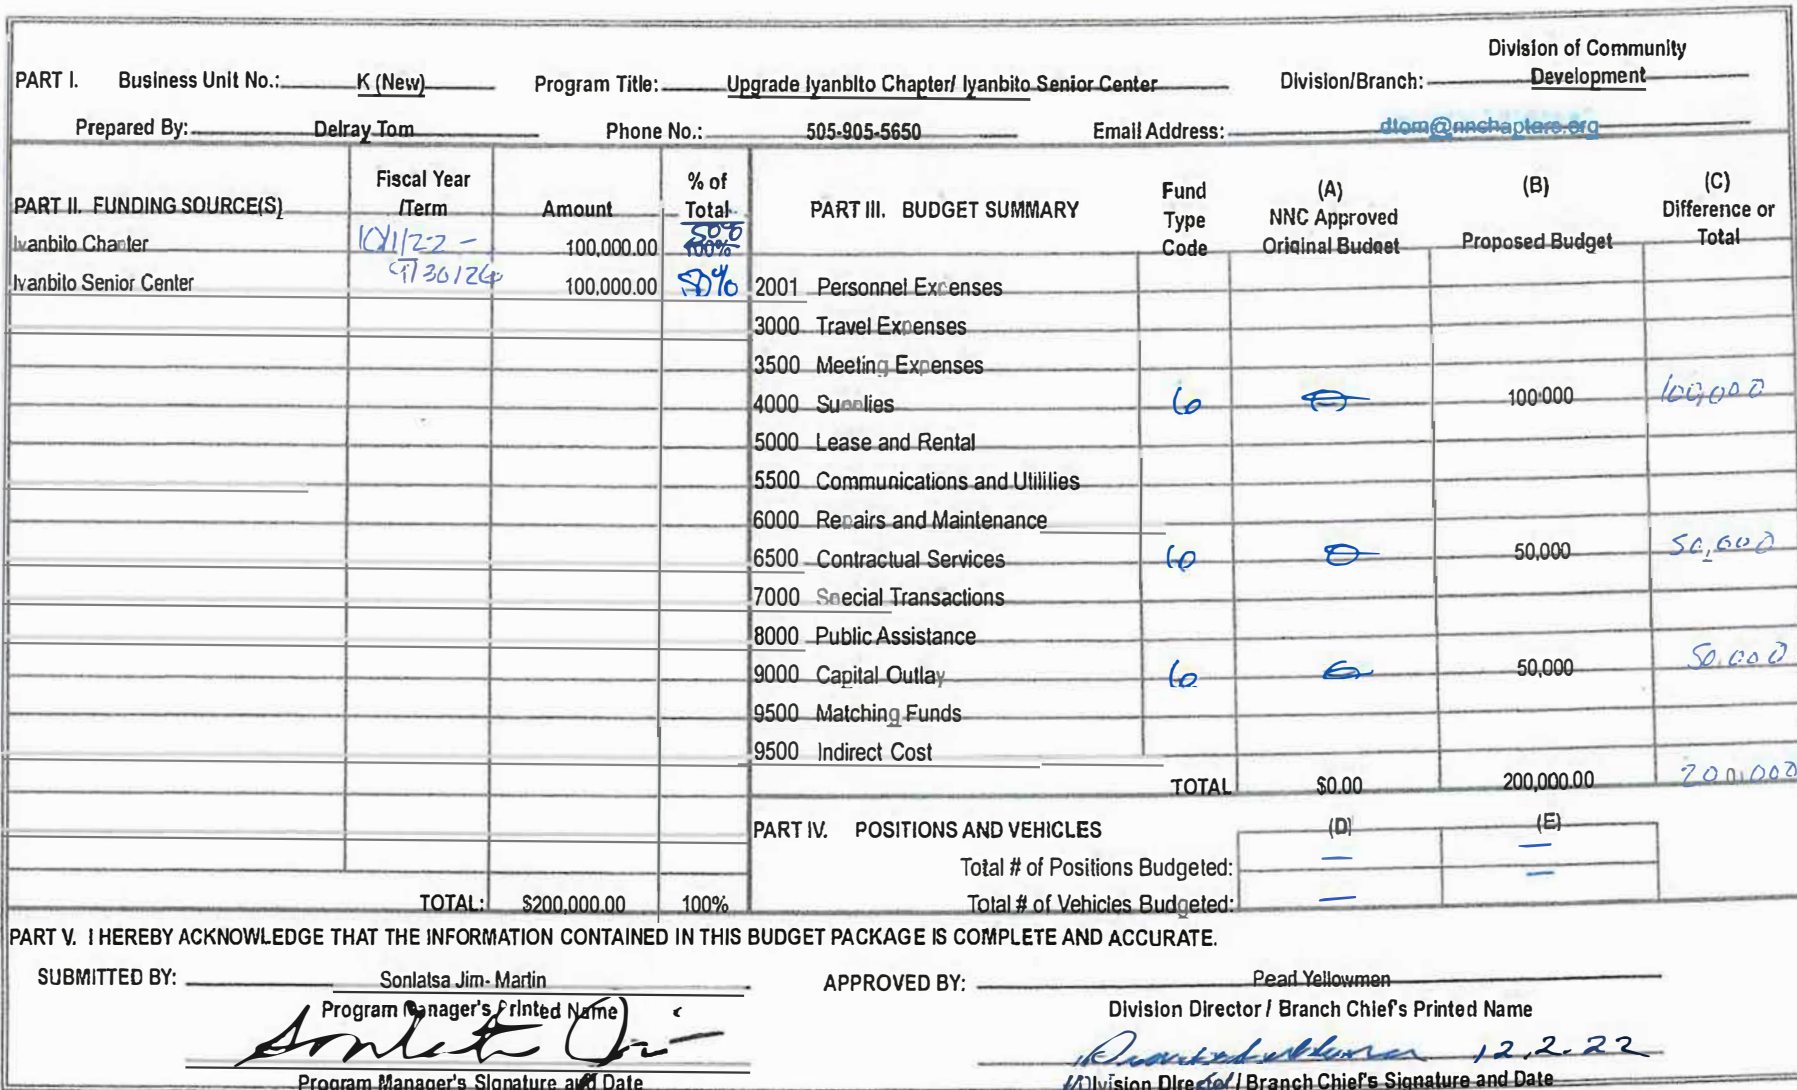 Division of Community
PART I. Business Unit No.: K (New) Program Title: Upgrade Iyanbito Chapter/ Iyanbito Senior Center Division/Branch: Development
Prepared By: Delray Tom Phone No.: 505-905-5650 Email Address: dtom@nnchapters.org
PART II. FUNDING SOURCE(S) Fiscal Year /Term Amount % of Total
Iyanbito Chapter 10/1/22 - 100,000.00 50% 100%
Iyanbito Senior Center 9/30/26 100,000.00 50%
TOTAL: $200,000.00 100%
PART III. BUDGET SUMMARY Fund Type Code (A) NNC Approved Original Budget (B) Proposed Budget (C) Difference or Total
2001 Personnel Expenses
3000 Travel Expenses
3500 Meeting Expenses
4000 Supplies 6 0 100,000 100,000
5000 Lease and Rental
5500 Communications and Utilities
6000 Repairs and Maintenance
6500 Contractual Services 6 0 50,000 50,000
7000 Special Transactions
8000 Public Assistance
9000 Capital Outlay 6 0 50,000 50,000
9500 Matching Funds
9500 Indirect Cost
TOTAL $0.00 200,000.00 200,000
PART IV. POSITIONS AND VEHICLES (D) (E)
Total # of Positions Budgeted: — —
Total # of Vehicles Budgeted: — —
PART V. I HEREBY ACKNOWLEDGE THAT THE INFORMATION CONTAINED IN THIS BUDGET PACKAGE IS COMPLETE AND ACCURATE.
SUBMITTED BY: Sonlatsa Jim-Martin APPROVED BY: Pearl Yellowmen
Program Manager's Printed Name Division Director / Branch Chief's Printed Name
12.2.22
Program Manager's Signature and Date Division Director / Branch Chief's Signature and Date